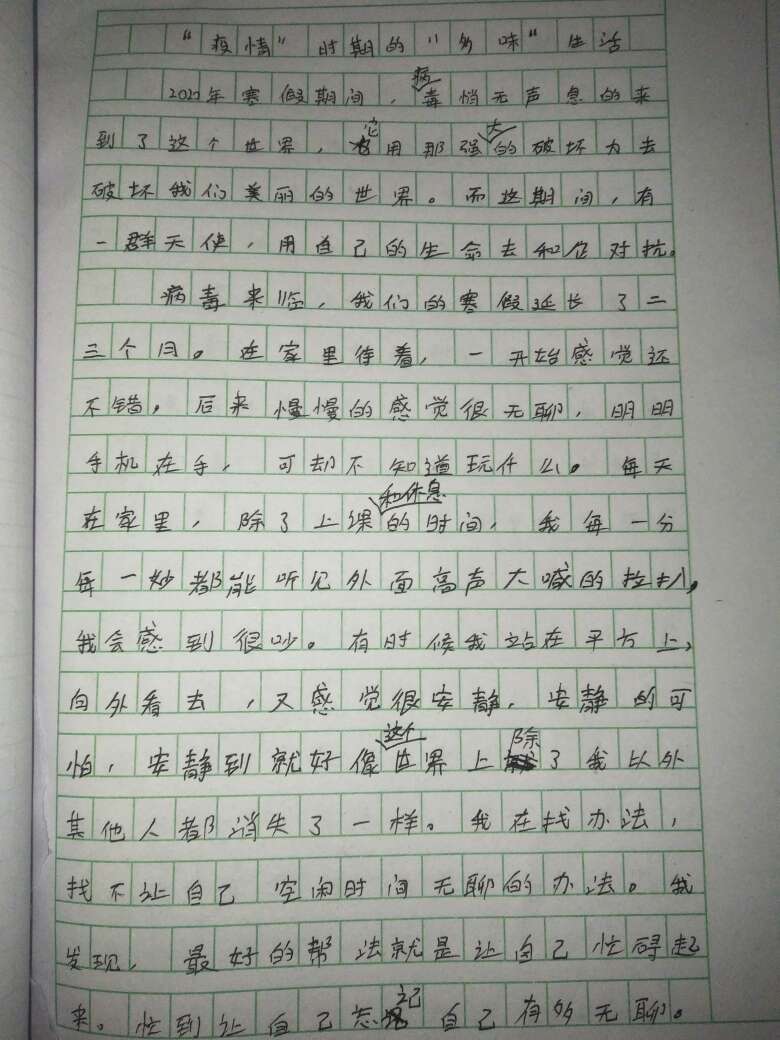 “疫情”时期的“多味”生活
2020年寒假期间，病毒悄无声息的来
到了这个世界，它用那强大的破坏力去
破坏我们美丽的世界。而这期间，有
一群天使，用自己的生命去和它对抗。
病毒来临，我们的寒假延长了二
三个月。在家里待着，一开始感觉还
不错。后来慢慢的感觉很无聊，明明
手机在手，可却不知道玩什么。每天
在家里，除了上课和休息的时间，我每一分
每一妙都能听见外面高声大喊的拉扒，
我会感到很吵。有时候我站在平方上，
向外看去，又感觉很安静，安静的可
怕，安静到就好像这个世界上除了我以外
其他人都消失了一样。我在找办法，
找不让自己空闲时间无聊的办法。我
发现，最好的帮法就是让自己忙碍起
来。忙到让自己忘记自己有多无聊。